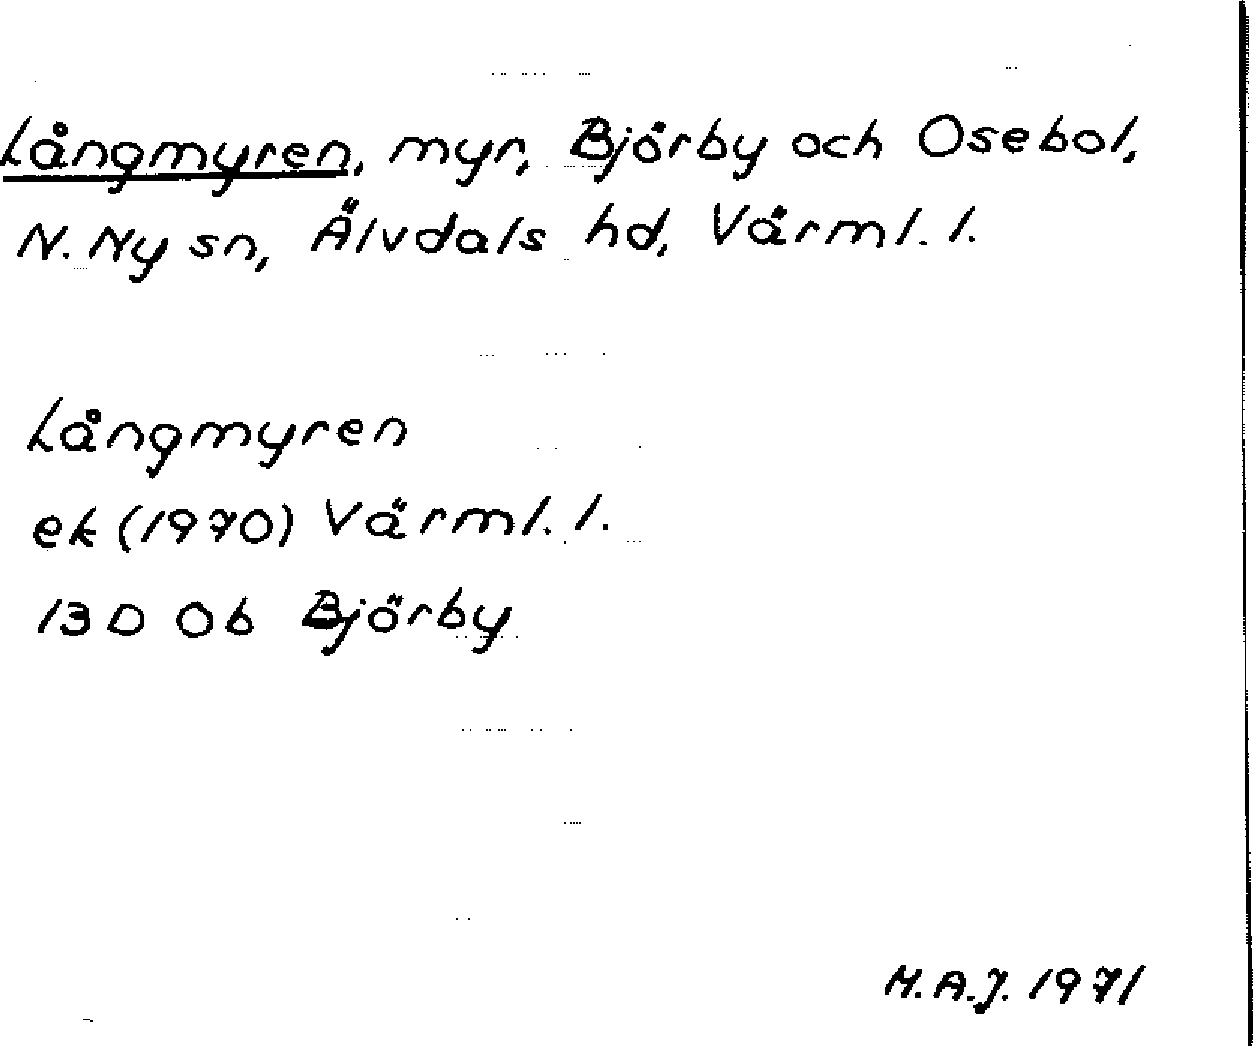 Långmyren, myr, Björby och Osebol,
N. Ny sn, Älvdals hd, Värml. l.
Långmyren
ek (1970) Värml. l.
13D 0b Björby
M.A.J. 1971